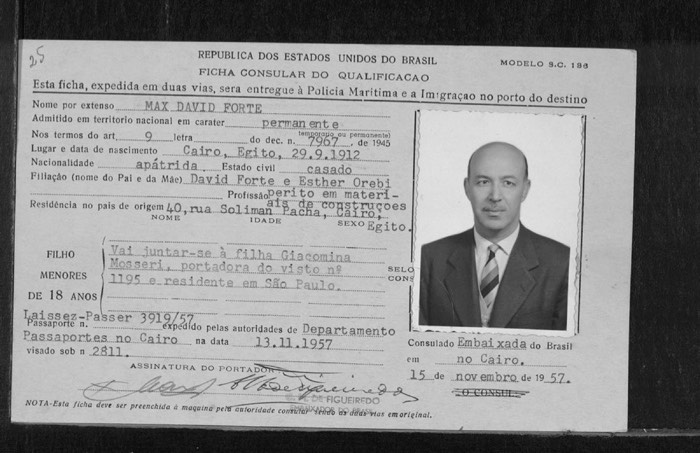 25
REPUBLICA DOS ESTADOS UNIDOS DO BRASIL
MODELO S.C. 136
FICHA CONSULAR DO QUALIFICACAO
Esta ficha, expedida em duas vias, sera entregue à Policia Maritima e a Imigraçao no porto do destino
Nome por extenso MAX DAVID FORTE
Admitido em territorio nacional em carater permanente
(temporario ou permanente)
Nos termos do art. 9 letra do dec. n. 7967, de 1945
Lugar e data de nascimento Cairo, Egito, 29.9.1912
Nacionalidade apátrida Estado civil casado
Filiação (nome do Pai e da Mãe) David Forte e Esther Orebi
Profissão perito em materi-
ais de construçoes
Residência no pais de origem 40, rua Soliman Pacha, Cairo,
NOME IDADE SEXO Egito.
FILHO
MENORES
DE 18 ANOS
Vai juntar-se à filha Giacomina
Mosseri, portadora do visto nº
1195 e residente em São Paulo.
SELO
CONS
Laissez-Passer 3919/57
Passaporte n. expedido pelas autoridades de Departamento
Passaportes no Cairo na data 13.11.1957
visado sob n 2811.
ASSINATURA DO PORTADOR
Consulado Embaixada do Brasil
em no Cairo.
15 de novembro de 1957.
O CONSUL
DE FIGUEIREDO
NOTA-Esta ficha deve ser preenchida à maquina pela autoridade consular sendo as duas vias em original.